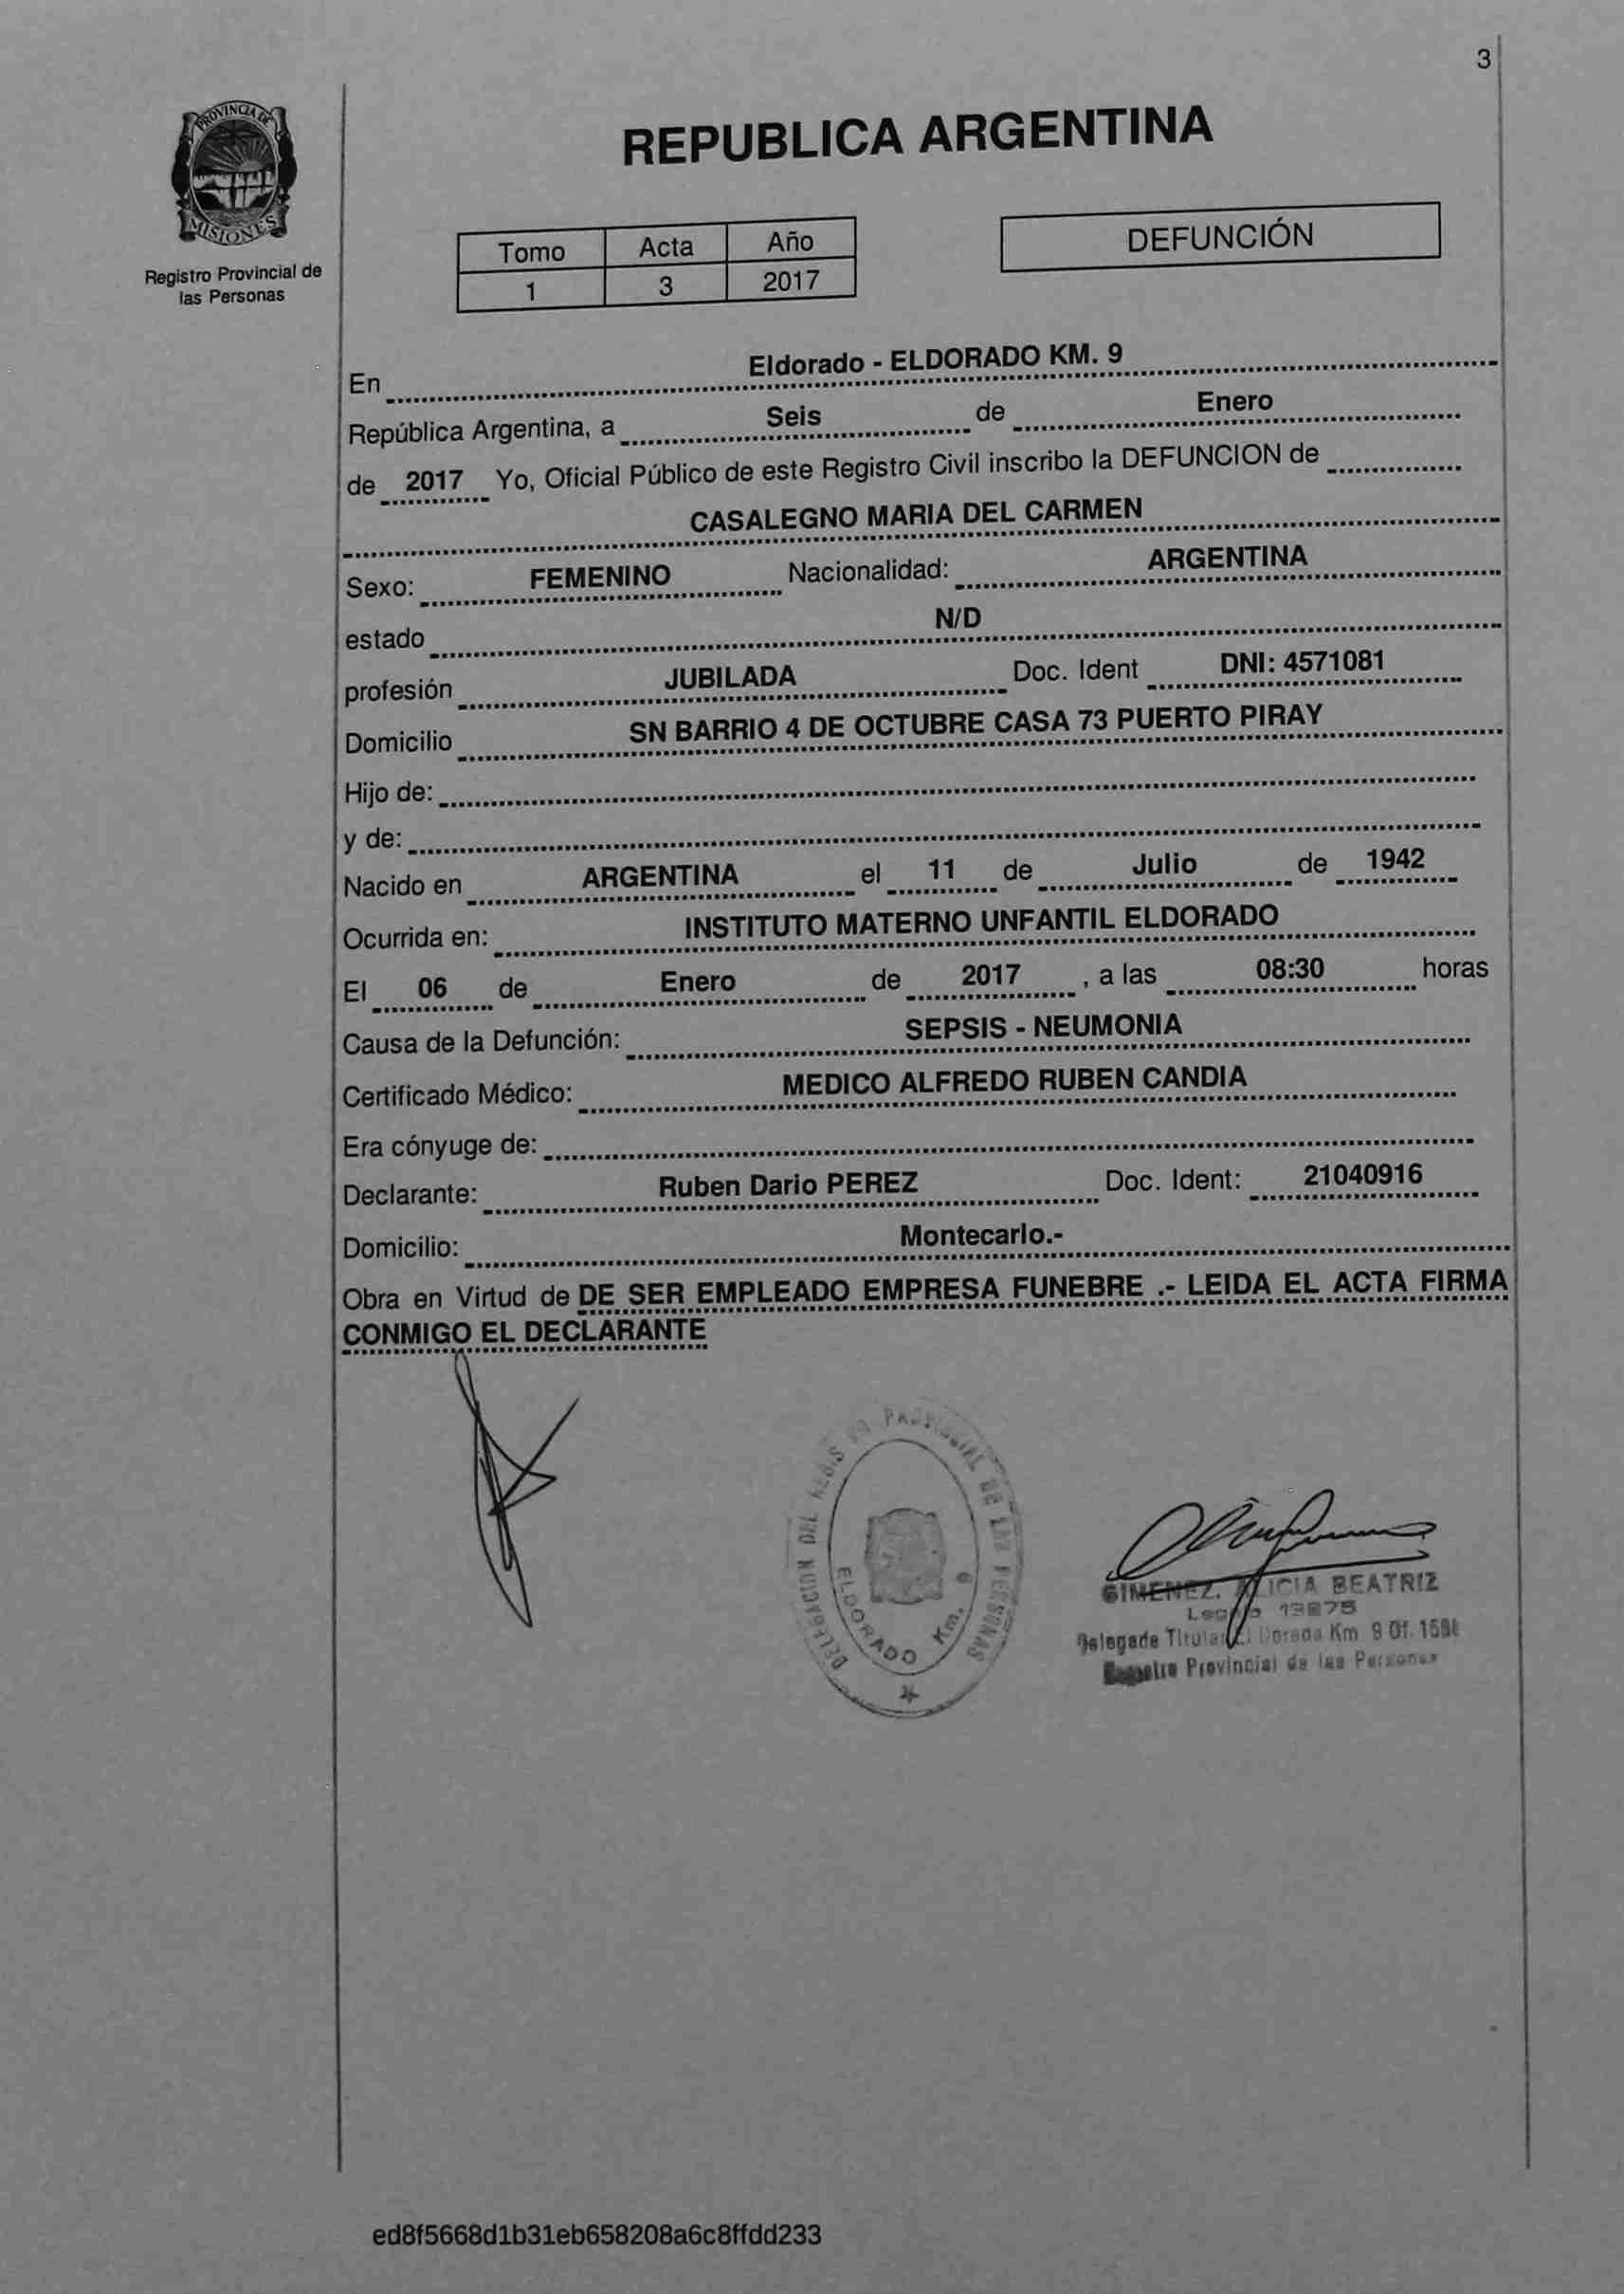 3
PROVINCIA DE
MISIONES
Registro Provincial de
las Personas
REPUBLICA ARGENTINA
Tomo Acta Año
1 3 2017
DEFUNCIÓN
En Eldorado - ELDORADO KM. 9
República Argentina, a Seis de Enero
de 2017 Yo, Oficial Público de este Registro Civil inscribo la DEFUNCION de
CASALEGNO MARIA DEL CARMEN
Sexo: FEMENINO Nacionalidad: ARGENTINA
estado N/D
profesión JUBILADA Doc. Ident DNI: 4571081
Domicilio SN BARRIO 4 DE OCTUBRE CASA 73 PUERTO PIRAY
Hijo de:
y de:
Nacido en ARGENTINA el 11 de Julio de 1942
Ocurrida en: INSTITUTO MATERNO UNFANTIL ELDORADO
El 06 de Enero de 2017 , a las 08:30 horas
Causa de la Defunción: SEPSIS - NEUMONIA
Certificado Médico: MEDICO ALFREDO RUBEN CANDIA
Era cónyuge de:
Declarante: Ruben Dario PEREZ Doc. Ident: 21040916
Domicilio: Montecarlo.-
Obra en Virtud de DE SER EMPLEADO EMPRESA FUNEBRE .- LEIDA EL ACTA FIRMA
CONMIGO EL DECLARANTE
DELEGACION DEL PROVINCIAL DE LAS PERSONAS
ELDORADO Km. 9
GIMENEZ. ALICIA BEATRIZ
Legajo 13875
Delegada Titular El Dorado Km 9 Of.
Registro Provincial de las Personas
ed8f5668d1b31eb658208a6c8ffdd233